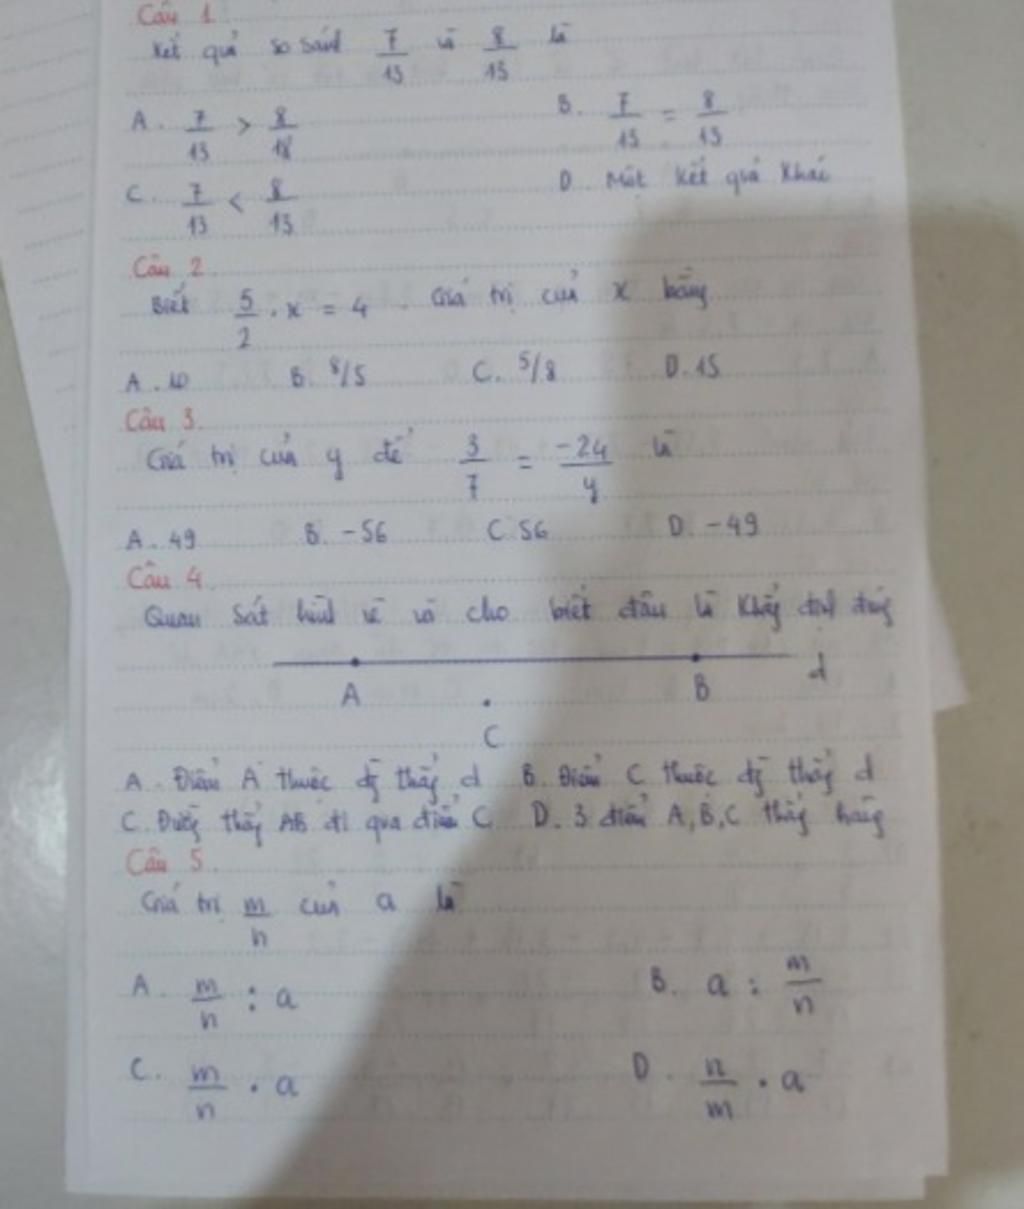 Câu 1
Kết quả so sánh 7/13 và 8/13 là
A. 7/13 > 8/18 B. 7/13 = 8/13
C. 7/13 < 8/13 D. Một kết quả khác
Câu 2.
Biết 5/2 . x = 4. Giá trị của x bằng
A. 10 B. 8/5 C. 5/8 D. 15
Câu 3.
Giá trị của y để 3/7 = -24/y là
A. 49 B. -56 C. 56 D. -49
Câu 4.
Quan sát hình vẽ và cho biết đâu là khẳng định đúng
A B d
C
A. Điểm A thuộc đg thẳng d B. Điểm C thuộc đg thẳng d
C. Đường thẳng AB đi qua điểm C D. 3 điểm A, B, C thẳng hàng
Câu 5.
Giá trị m/n của a là
A. m/n : a B. a : m/n
C. m/n . a D. n/m . a